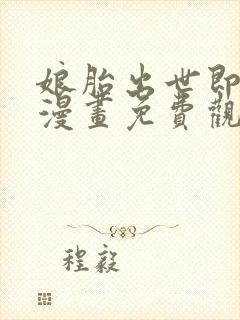 娘胎出世即
漫畫免費觀
程毅